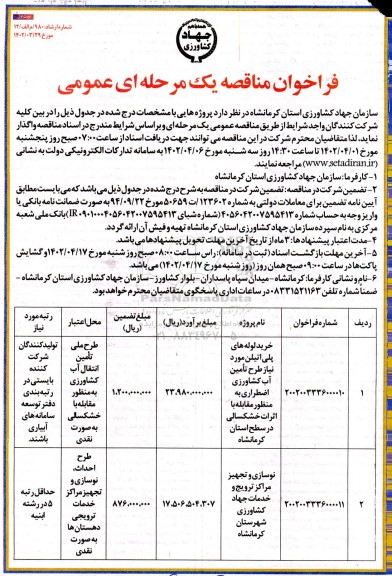 شماره ارشاد: ۹۸۰/م الف/۱۲
مورخ ۱۴۰۲/۰۳/۲۹
جهاد
کشاورزی
فراخوان مناقصه یک مرحله ای عمومی
سازمان جهاد کشاورزی استان کرمانشاه در نظر دارد پروژه هایی با مشخصات درج شده در جدول ذیل را در بین کلیه
شرکت کنندگان واجد شرایط از طریق مناقصه عمومی یک مرحله ای و بر اساس شرایط مندرج در اسناد مناقصه واگذار
نماید. لذا متقاضیان محترم شرکت در این مناقصه می توانند جهت دریافت اسناد از ساعت ۰۷:۰۰ صبح روز پنجشنبه
مورخ ۱۴۰۲/۰۴/۰۱ تا ساعت ۱۴:۳۰ روز سه شنبه مورخ ۱۴۰۲/۰۴/۰۶ به سامانه تدارکات الکترونیکی دولت به نشانی
(www.setadiran.ir) مراجعه نمایند.
۱-کارفرما: سازمان جهاد کشاورزی استان کرمانشاه
۲- تضمین شرکت در مناقصه: تضمین شرکت در مناقصه به شرح درج شده در جدول ذیل می باشد که می بایست مطابق
آیین نامه تضمین برای معاملات دولتی به شماره ۱۲۳۴۰۲/ت ۵۰۶۵۹ مورخ ۹۴/۰۹/۲۲ به صورت ضمانت نامه بانکی یا
واریز وجه به حساب شماره ۴۰۵۶۴۰۲۰۰۷۵۹۵۴۱۳ بانک ملی شعبه
مرکزی به نام سپرده سازمان جهاد کشاورزی استان کرمانشاه تهیه و فیش آن ارائه گردد.
۴-مدت اعتبار پیشنهادها: ۳ ماه از تاریخ آخرین مهلت تحویل پیشنهادها می باشد.
۵-آخرین مهلت بازگشت اسناد (ثبت در سامانه): راس ساعت ۰۸:۰۰ صبح روز شنبه مورخ ۱۴۰۲/۰۴/۱۷ و گشایش
پاکت ها در ساعت ۰۹:۰۰ صبح همان روز (روز شنبه مورخ ۱۴۰۲/۰۴/۱۷) می باشد.
۶-نام و نشانی کارفرما: کرمانشاه - میدان سپاه پاسداران - بلوار کشاورز - سازمان جهاد کشاورزی استان کرمانشاه -
ضمنا شماره تلفن ۰۸۳۳۱۵۲۱۱۶۳ در ساعات اداری پاسخگوی متقاضیان محترم خواهد بود.
ردیف شماره فراخوان نام پروژه مبلغ برآورد (ریال) مبلغ تضمین (ریال) محل اعتبار رتبه مورد نیاز
۱ ۲۰۰۲۰۰۳۳۳۶۰۰۰۰۱۰ خرید لوله های پلی اتیلن مورد نیاز طرح تأمین آب کشاورزی اضطراری به منظور مقابله با اثرات خشکسالی در سطح استان کرمانشاه ۲۳،۹۸۰،۰۰۰،۰۰۰ ۱،۲۰۰،۰۰۰،۰۰۰ طرح ملی تأمین انتقال آب کشاورزی به منظور مقابله با خشکسالی به صورت نقدی تولیدکنندگان شرکت کننده بایستی در رتبه بندی دفتر توسعه سامانه های آبیاری باشند
۲ ۲۰۰۲۰۰۳۳۳۶۰۰۰۰۱۱ نوسازی و تجهیز مراکز ترویج و خدمات جهاد کشاورزی شهرستان کرمانشاه ۱۷،۵۰۶،۵۰۴،۳۰۷ ۸۷۶،۰۰۰،۰۰۰ طرح احداث، نوسازی و تجهیز مراکز خدمات ترویجی دهستان ها به صورت نقدی حداقل رتبه ۵ در رشته ابنیه